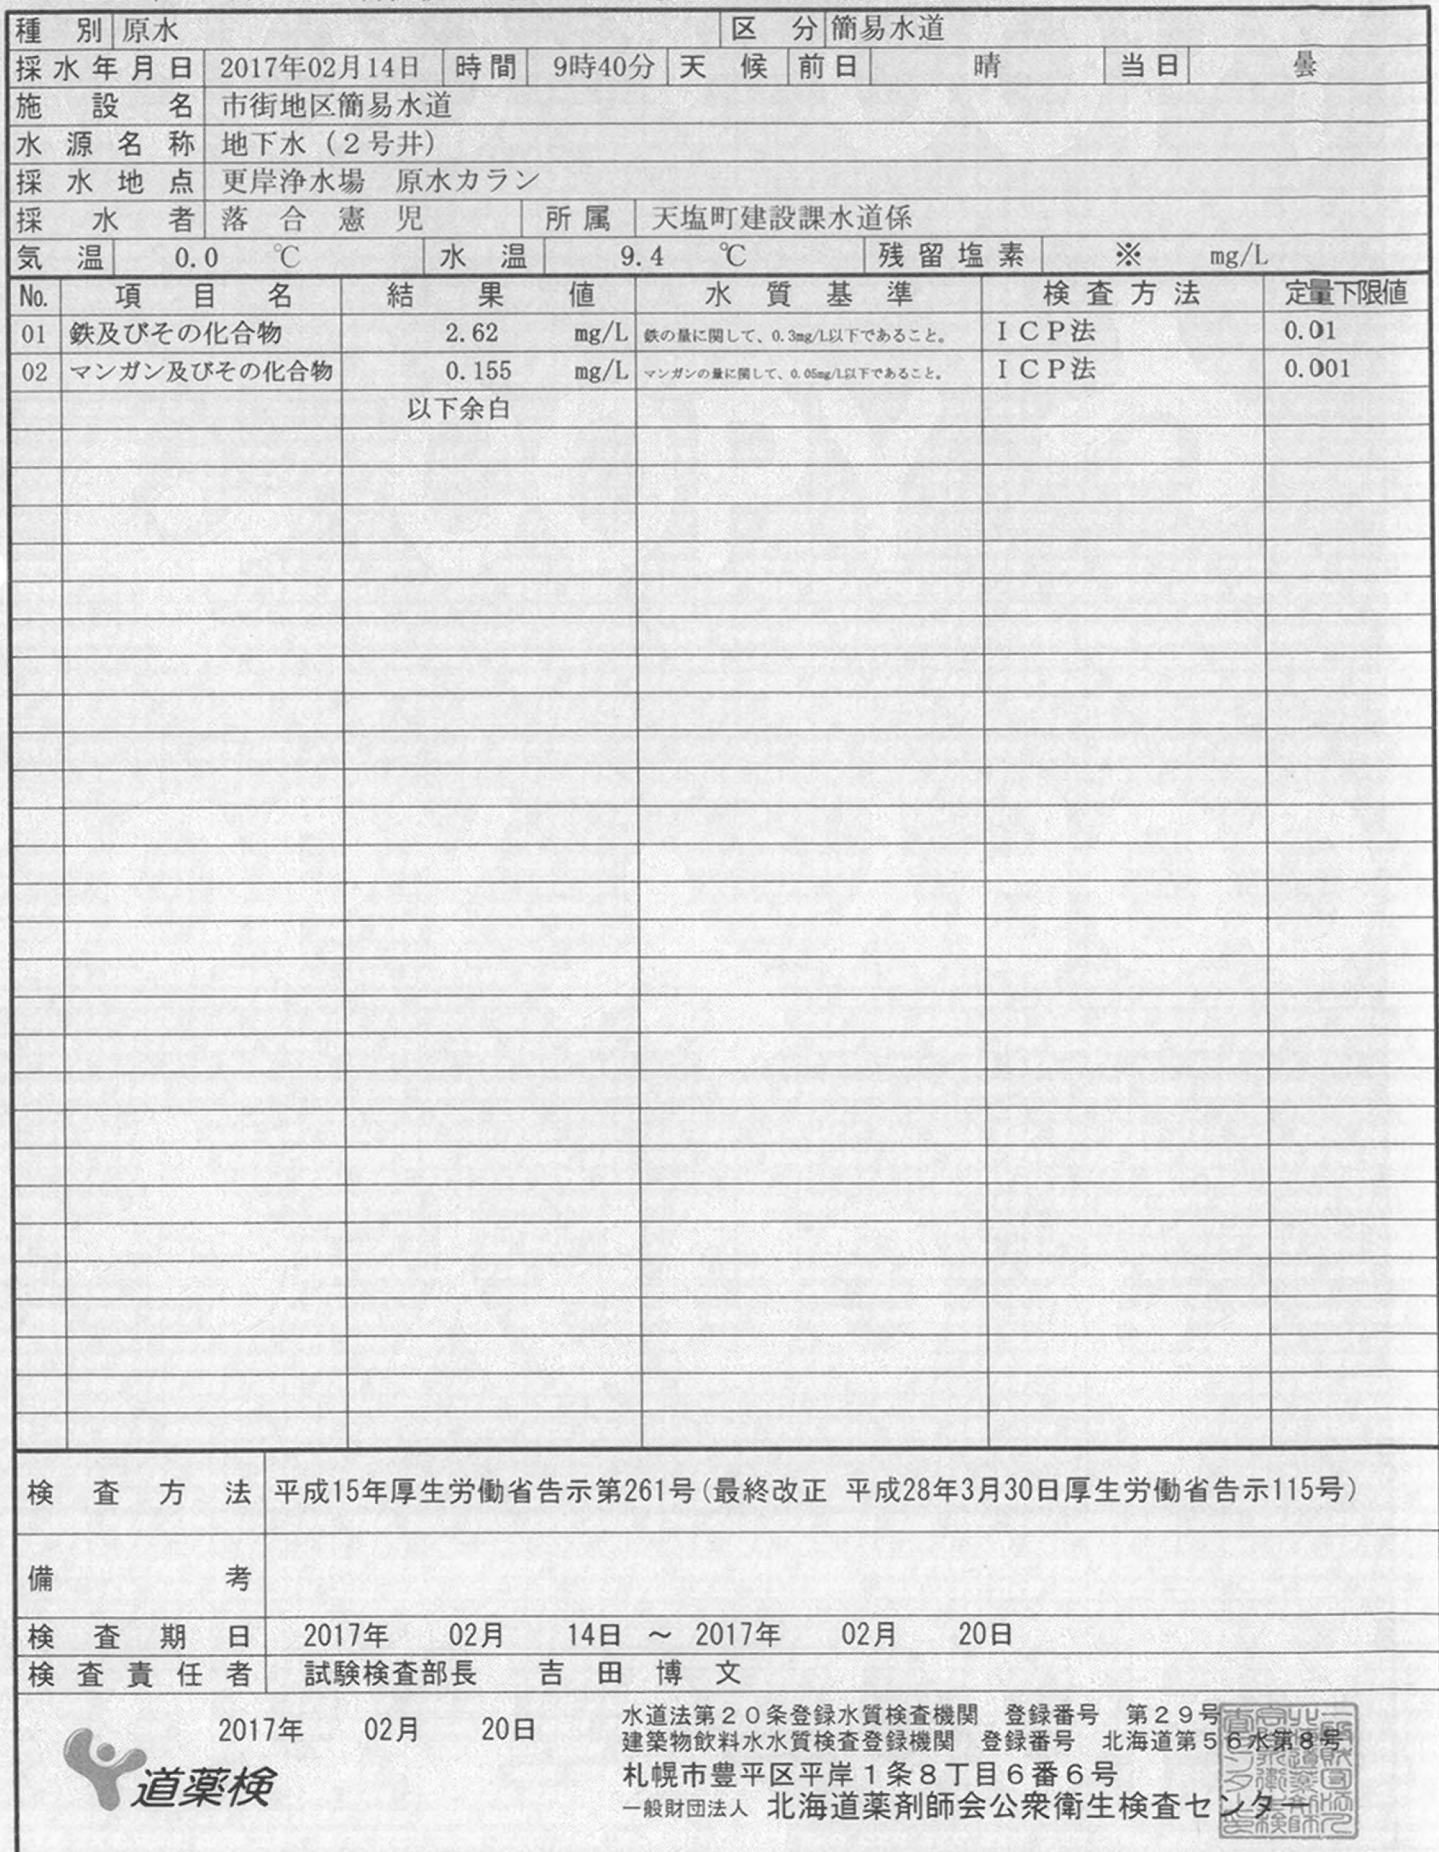 種別 原水 区分 簡易水道
採水年月日 2017年02月14日 時間 9時40分 天候 前日 晴 当日 曇
施設名 市街地区簡易水道
水源名称 地下水（２号井）
採水地点 更岸浄水場　原水カラン
採水者 落合憲児 所属 天塩町建設課水道係
気温 0.0 ℃ 水温 9.4 ℃ 残留塩素 ※ mg/L
No. 項目名 結果値 水質基準 検査方法 定量下限値
01 鉄及びその化合物 2.62 mg/L 鉄の量に関して、0.3mg/L以下であること。 ＩＣＰ法 0.01
02 マンガン及びその化合物 0.155 mg/L マンガンの量に関して、0.05mg/L以下であること。 ＩＣＰ法 0.001
以下余白
検査方法 平成15年厚生労働省告示第261号(最終改正 平成28年3月30日厚生労働省告示115号)
備考
検査期日 2017年 02月 14日 ～ 2017年 02月 20日
検査責任者 試験検査部長 吉田博文
2017年 02月 20日
水道法第２０条登録水質検査機関 登録番号 第２９号
建築物飲料水水質検査登録機関 登録番号 北海道第５６水第８号
札幌市豊平区平岸１条８丁目６番６号
一般財団法人 北海道薬剤師会公衆衛生検査センター
道薬検